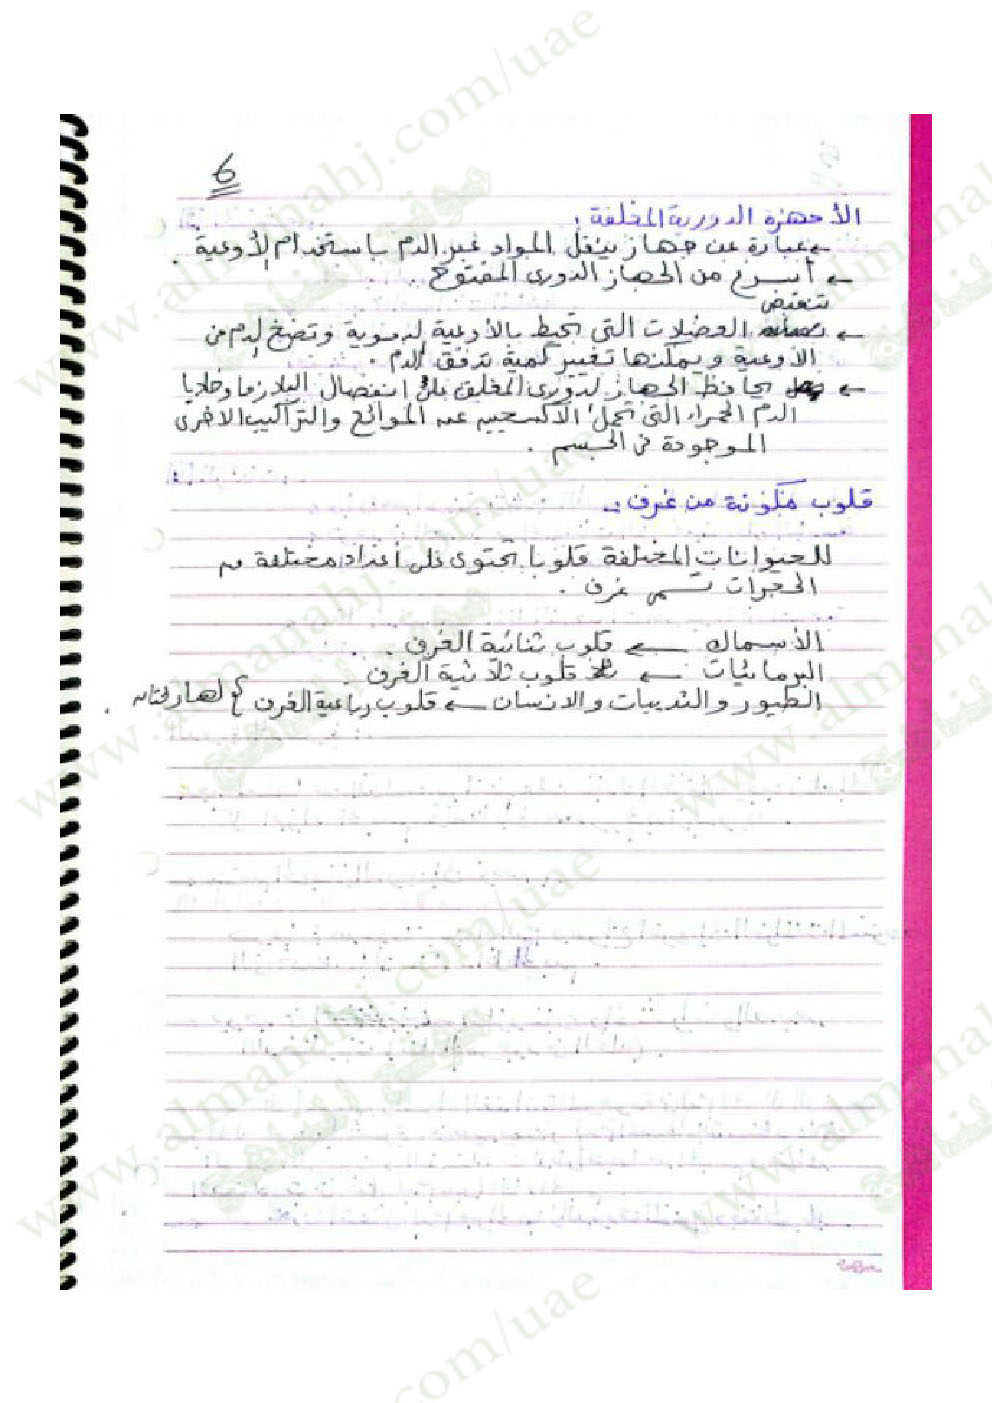 6
الأجهزة الدورية المغلقة :
← عبارة عن جهاز ينقل المواد عبر الدم باستخدام الأوعية .
← أسرع من الجهاز الدوري المفتوح .
تنقبض
← العضلات التي تحيط بالأوعية الدموية وتضخ الدم من
الأوعية ويمكنها تغيير كمية تدفق الدم .
← يحافظ الجهاز الدوري المغلق على انفصال البلازما وخلايا
الدم الحمراء التي تحمل الأكسجين عن الموائع والتراكيب الأخرى
الموجودة في الجسم .
قلوب مكونة من غرف :
للحيوانات المختلفة قلوبا تحتوى على أعداد مختلفة من
الحجرات تسمى غرف .
الأسماك ← قلوب ثنائية الغرف .
البرمائيات ← قلوب ثلاثية الغرف .
الطيور والثدييات والانسان ← قلوب رباعية الغرف لها رئتان .
www.almanahj.com/uae
موقع المناهج